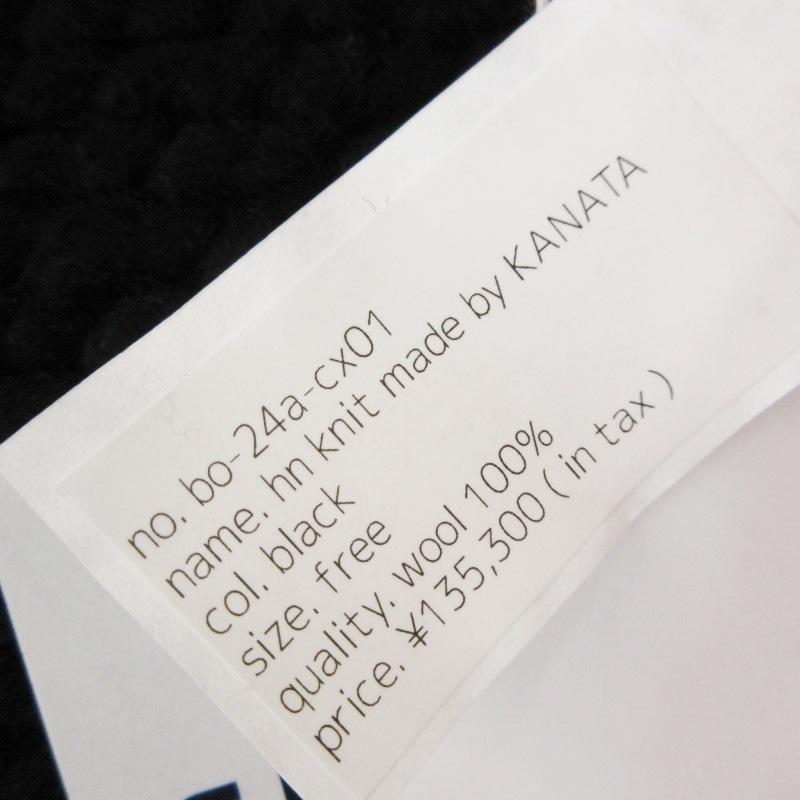 no. bo-24a-cx01
name. hn knit made by KANATA
col. black
size. free
quality. wool 100%
price. ¥135,300 ( in tax )